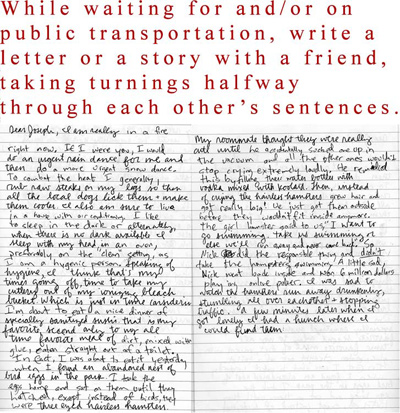 While waiting for and/or on
public transportation, write a
letter or a story with a friend,
taking turnings halfway
through each other's sentences.
Dear Joseph, I am really in a fire
right now. If I were you, I would
do an urgent rain dance for me and
then do a more urgent snow dance.
To combat the heat I generally
put raw steaks on my legs so then
all the local dogs lick them & make
them cooler. I also am sure to live
in a house with air conditioning. I like
to sleep in the dark or alternately,
when there is no dark available I
sleep with my head in an oven,
preferably on the clean setting, as
I am a hygenic person. Speaking of
hygiene, I think that's my
times going off, time to take my
cutlery out of my weekly bleach
bucket which is just in time
I'm about to eat a nice dinner of
specially sanitized sushi that is my
favorite second only to my all
time favorite meal of dirt, mixed with
glue, eaten straight out of a toilet.
In fact, I was about to eat it yesterday
when I found an abandoned nest of
bird eggs in the park. I took the
eggs home and sat on them until they
hatched, except instead of birds, they
were three eyed hairless hamsters.
My roommate thought they were really
evil until he accidentally sucked one up in
the vacuum and all the other ones wouldn't
stop crying extremely loudly. He remedied
this by filling their water bottles with
vodka mixed with koolaid. Then, instead
of crying the hairless hamsters grew hair and
got really big! We just got them outside
before they wouldn't fit inside anymore.
The girl hamster said to us, "I want to
go swimming. Take me swimming or
else we'll run away and never come back." So
Nick did the responsible thing and didn't
take the hampsters swimming. A little later,
Nick went back inside and won 6 million dollars
playing online poker. I was sad to
watch the hamsters run away drunkenly,
stumbling all over eachother & stopping
traffic. A few minutes later when I
got lonely I had a hunch where I
could find them